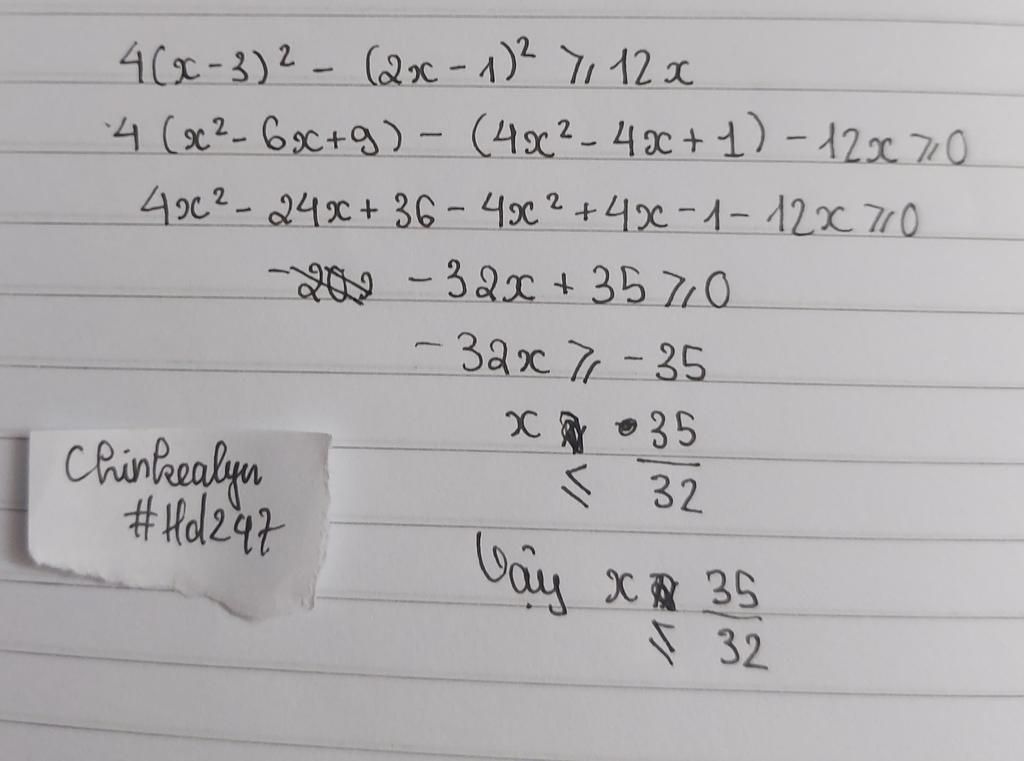 4(x-3)² - (2x-1)² ⩾ 12x
4 (x² - 6x + 9) - (4x² - 4x + 1) - 12x ⩾ 0
4x² - 24x + 36 - 4x² + 4x - 1 - 12x ⩾ 0
- 32x + 35 ⩾ 0
- 32x ⩾ - 35
x ⩽ 35/32
Vậy x ⩽ 35/32
Chinkealyn
#Hd247